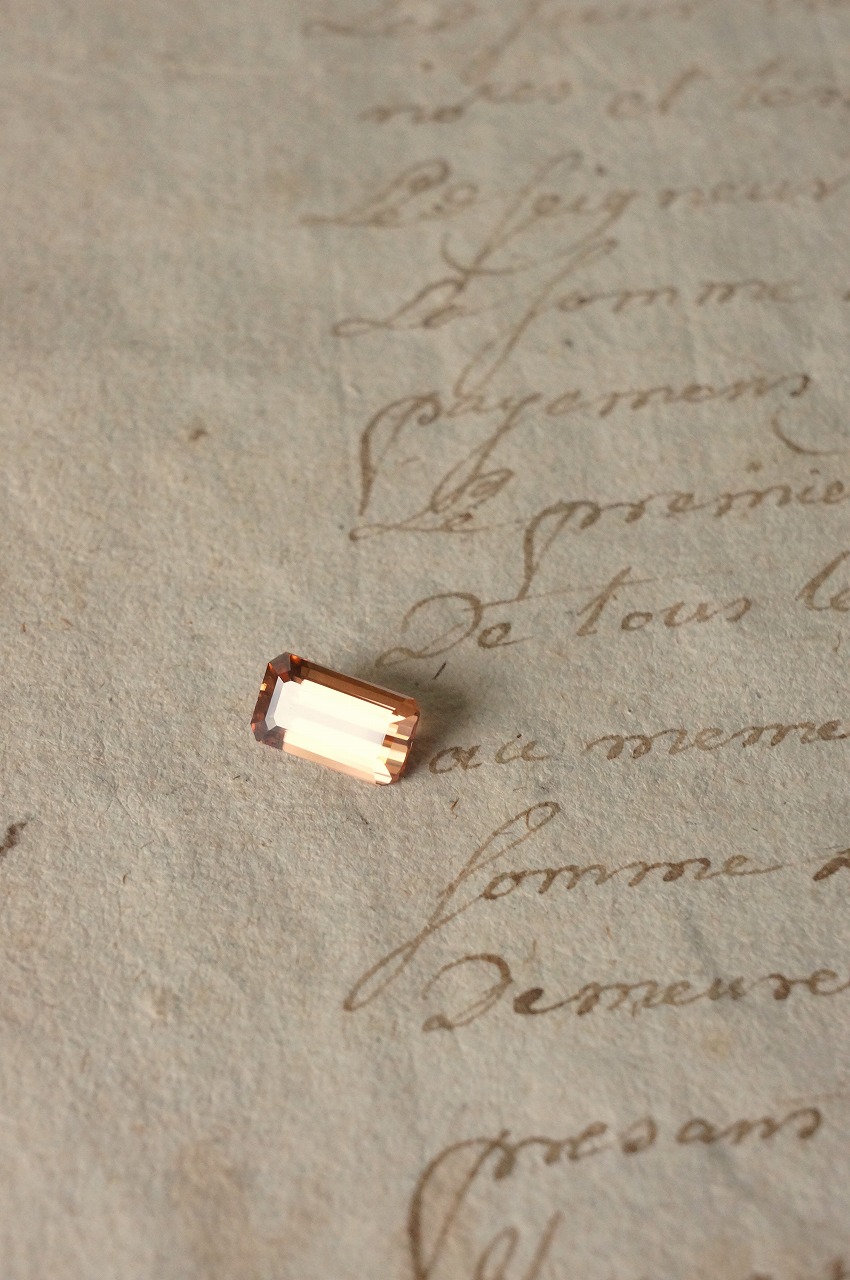 et
Le Seigneur
La Somme
payemens
Le premie
De tous le
au meme
Somme
Demeure
presans